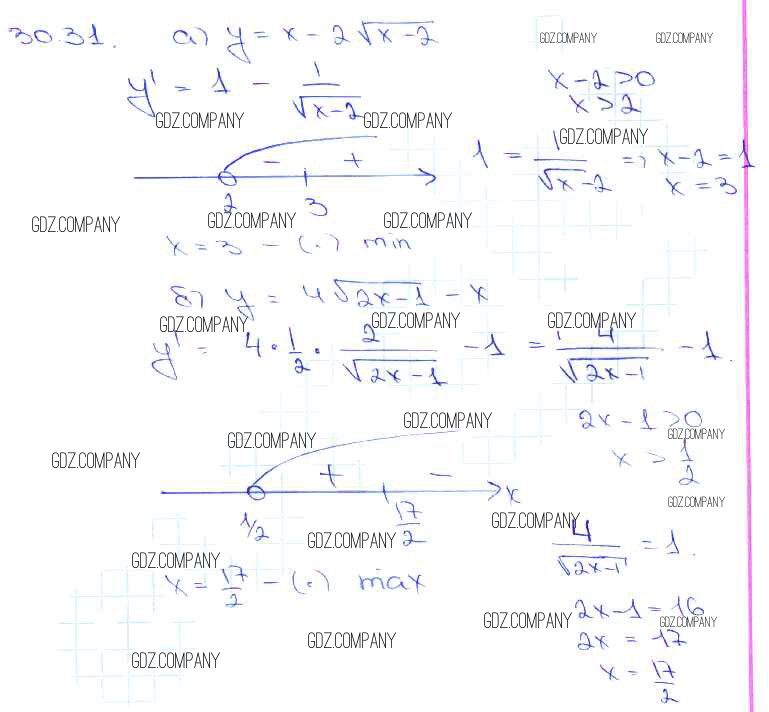 30.31. а) y = x - 2√(x-2)
GDZ.COMPANY GDZ.COMPANY
y' = 1 - 1/√(x-2)
x-2>0
x>2
GDZ.COMPANY GDZ.COMPANY GDZ.COMPANY
- +
1 = 1/√x-2 => x-2=1
x=3
2 3
GDZ.COMPANY GDZ.COMPANY GDZ.COMPANY
x=3 - (.) min
б) y = 4√(2x-1) - x
GDZ.COMPANY GDZ.COMPANY GDZ.COMPANY
y' = 4·1/2·2/√(2x-1) - 1 = 4/√(2x-1) - 1.
GDZ.COMPANY
2x-1>0
GDZ.COMPANY GDZ.COMPANY
x > 1/2
GDZ.COMPANY
+ -
x
GDZ.COMPANY
1/2 17/2
GDZ.COMPANY
GDZ.COMPANY
4/√(2x-1) = 1.
GDZ.COMPANY
x = 17/2 - (.) max
2x-1=16
GDZ.COMPANY GDZ.COMPANY
2x = 17
GDZ.COMPANY
x = 17/2
GDZ.COMPANY